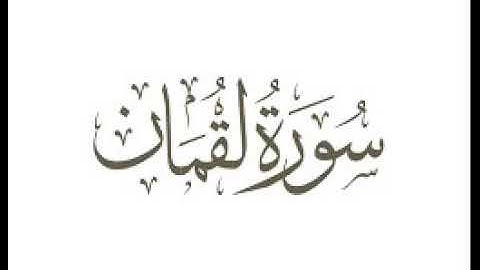 سُورَةُ لُقْمَان